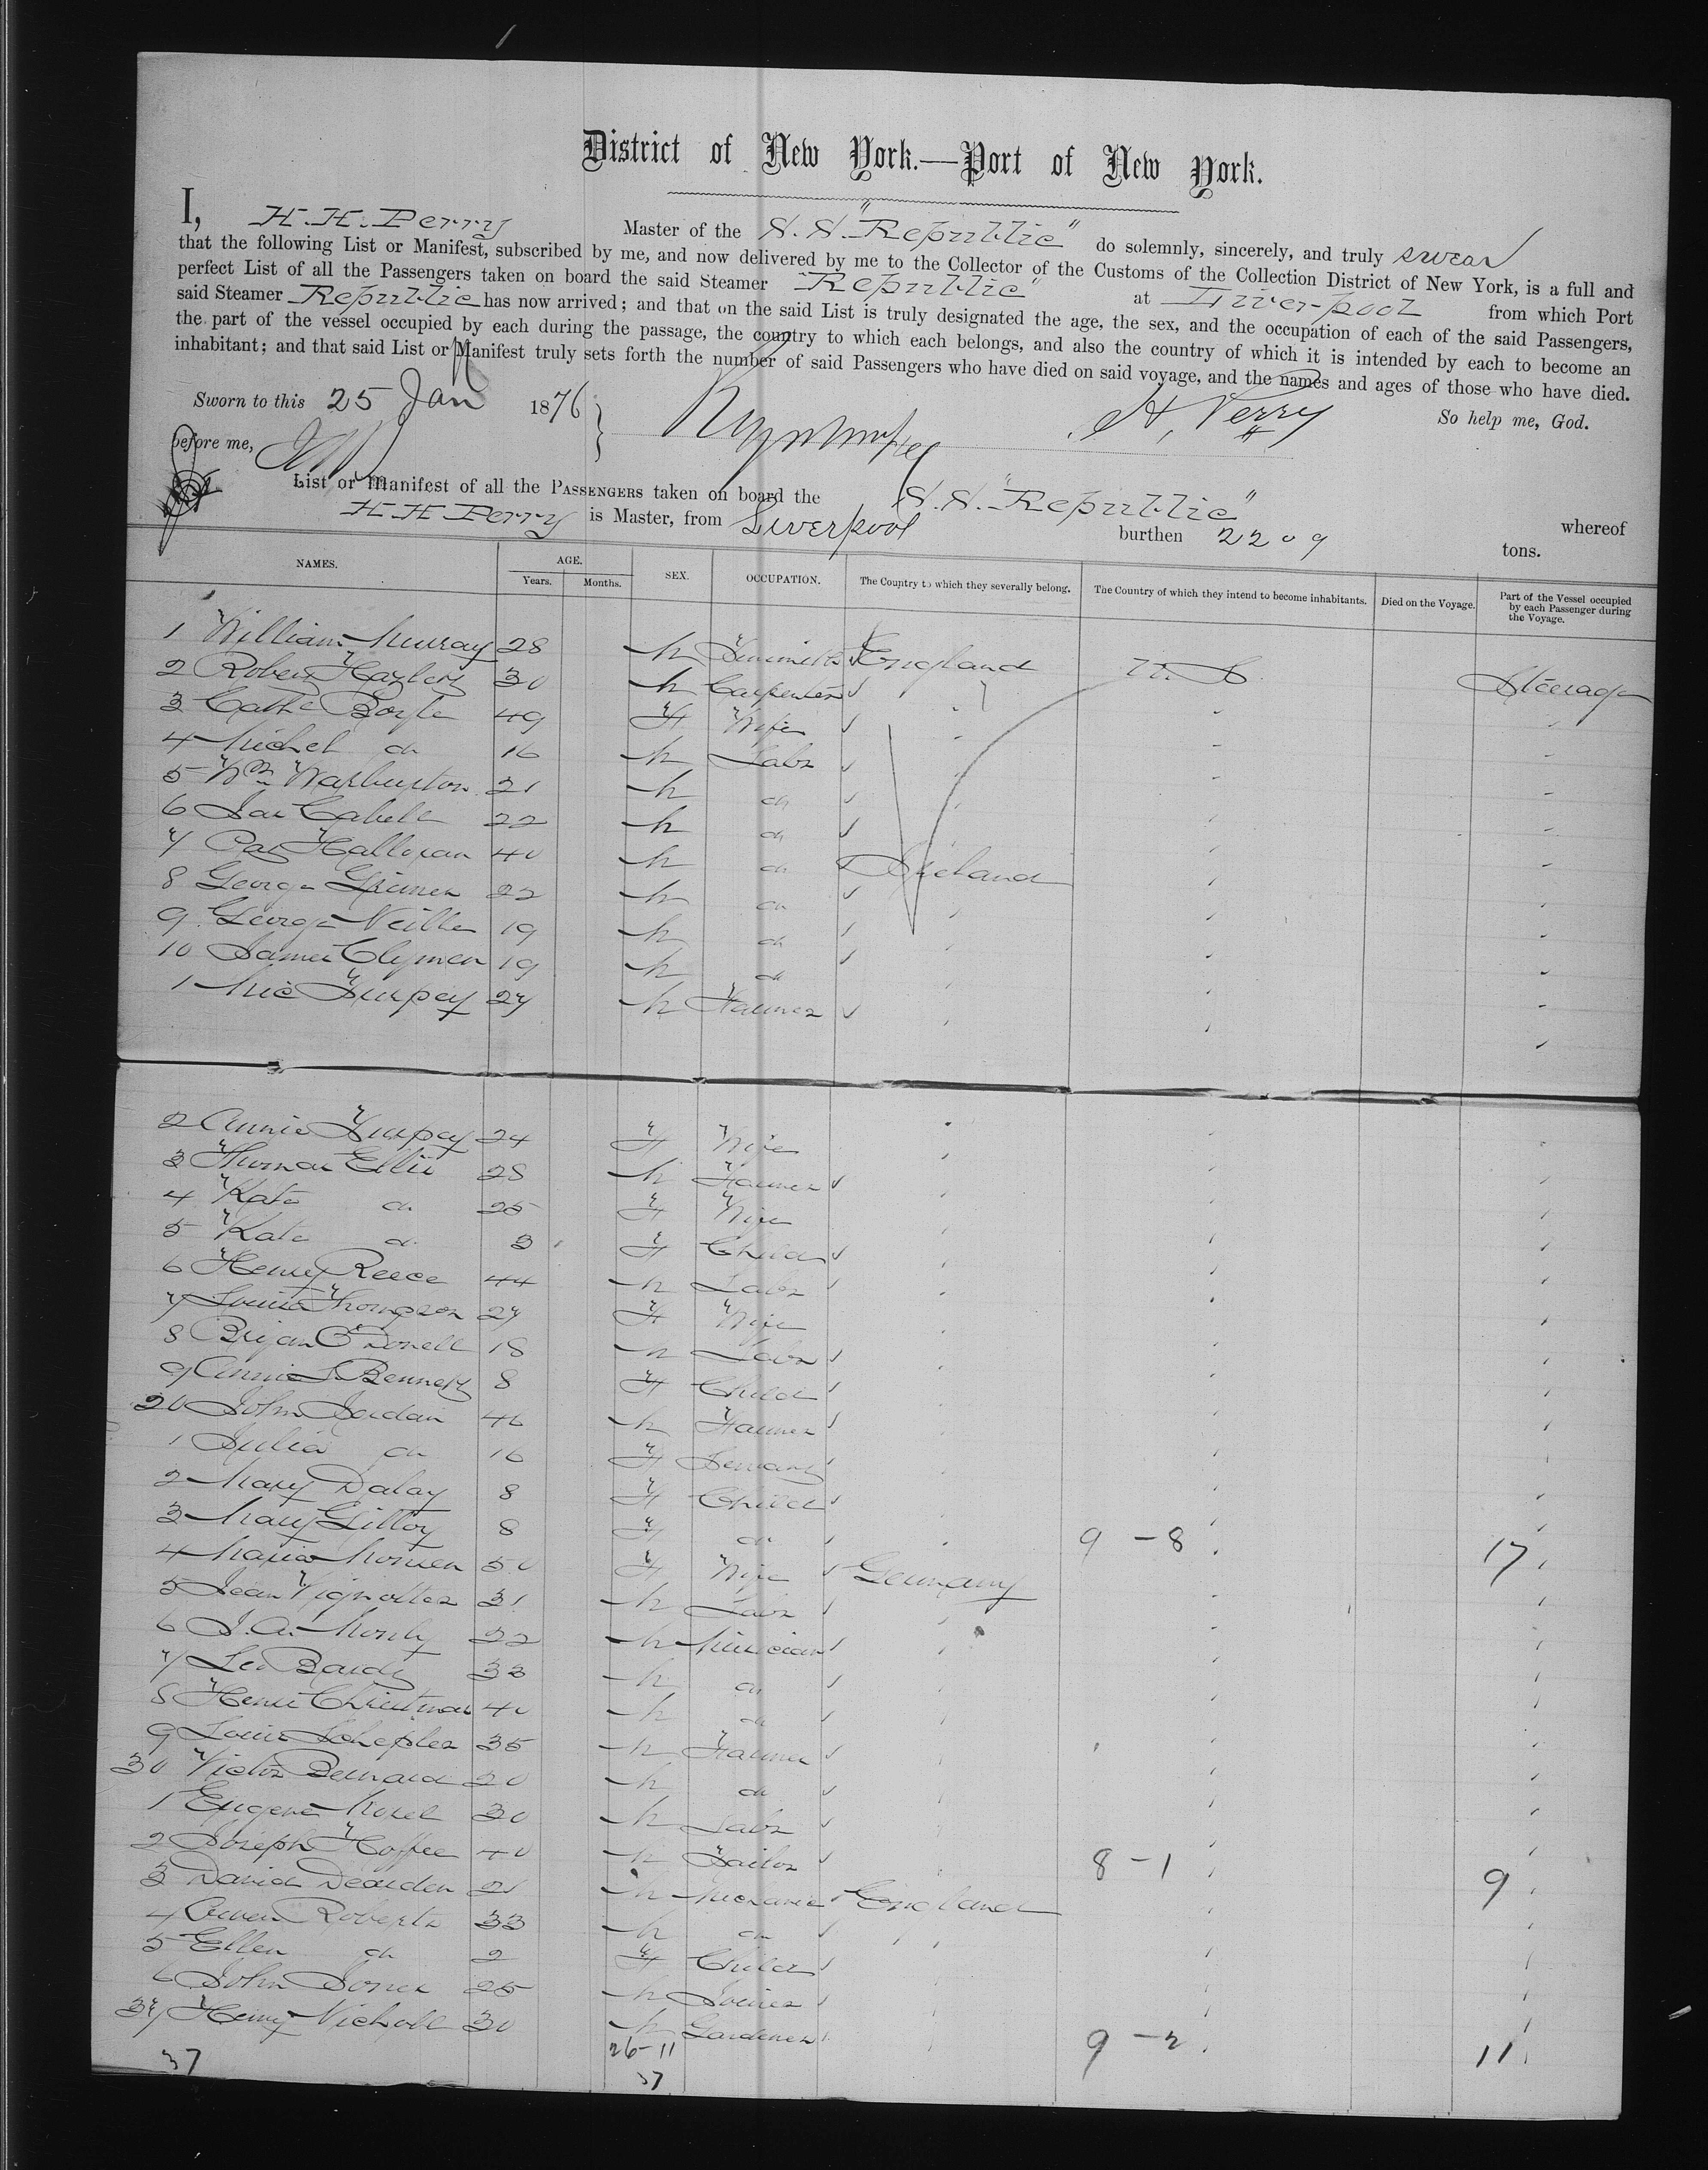 District of New York.—Port of New York.
I, H. H. Perry Master of the S. S. "Republic" do solemnly, sincerely, and truly swear
that the following List or Manifest, subscribed by me, and now delivered by me to the Collector of the Customs of the Collection District of New York, is a full and
perfect List of all the Passengers taken on board the said Steamer "Republic" at Liverpool from which Port
said Steamer Republic has now arrived; and that on the said List is truly designated the age, the sex, and the occupation of each of the said Passengers,
the part of the vessel occupied by each during the passage, the country to which each belongs, and also the country of which it is intended by each to become an
inhabitant; and that said List or Manifest truly sets forth the number of said Passengers who have died on said voyage, and the names and ages of those who have died.
So help me, God.
Sworn to this 25 Jan 1876 H. Perry
before me,
List or Manifest of all the PASSENGERS taken on board the S. S. "Republic" whereof
H H Perry is Master, from Liverpool burthen 2209 tons.
NAMES. AGE. SEX. OCCUPATION. The Country to which they severally belong. The Country of which they intend to become inhabitants. Died on the Voyage. Part of the Vessel occupied by each Passenger during the Voyage.
Years. Months.
1 William Murray 28 M England U. S. Steerage
2 Robert 30 M Carpenter "
3 Cathe Boyle 49 F Wife
4 Michel do 16 M Labr
5 Wm Warburton 21 M do
6 Cahill 22 M do
7 Pat Halloran 40 M do Ireland
8 George 22 M do
9 George 19 M do
10 James Clymen 19 M do
1 Mic 27 M Farmer
2 Annie 24 F Wife
3 Thomas Ellis 28 M Farmer
4 Kate do 25 F Wife
5 Kate do 3 F Child
6 Henry Reece 44 M Labr
7 Louisa Thompson 27 F Wife
8 Bryan O'Donell 18 M Labr
9 Annie S Bennett 8 F Child
20 John Jordan 46 M Farmer
1 Julia do 16 F Servant
2 Mary Dalay 8 F Child
3 Mary Gilloy 8 F do 9 - 8 17
4 Maria 50 F Wife Germany
5 Jean 31 M Labr
6 J. A. 22 M Musician
7 Leo Bardy 33 M do
8 Henri Christman 40 M do
9 Louis Schepler 35 M Farmer
30 Victor Bernard 20 M do
1 Eugene Morel 30 M Labr
2 Joseph 40 M Tailor 8 - 1 9
3 David Dearden 21 M Mechanic England
4 Owen Roberts 33 M do
5 Ellen do 2 F Child
6 John Jones 25 M Joiner
37 Henry Nicholl 30 M Gardener 9 - 2 11
37 26-11
37